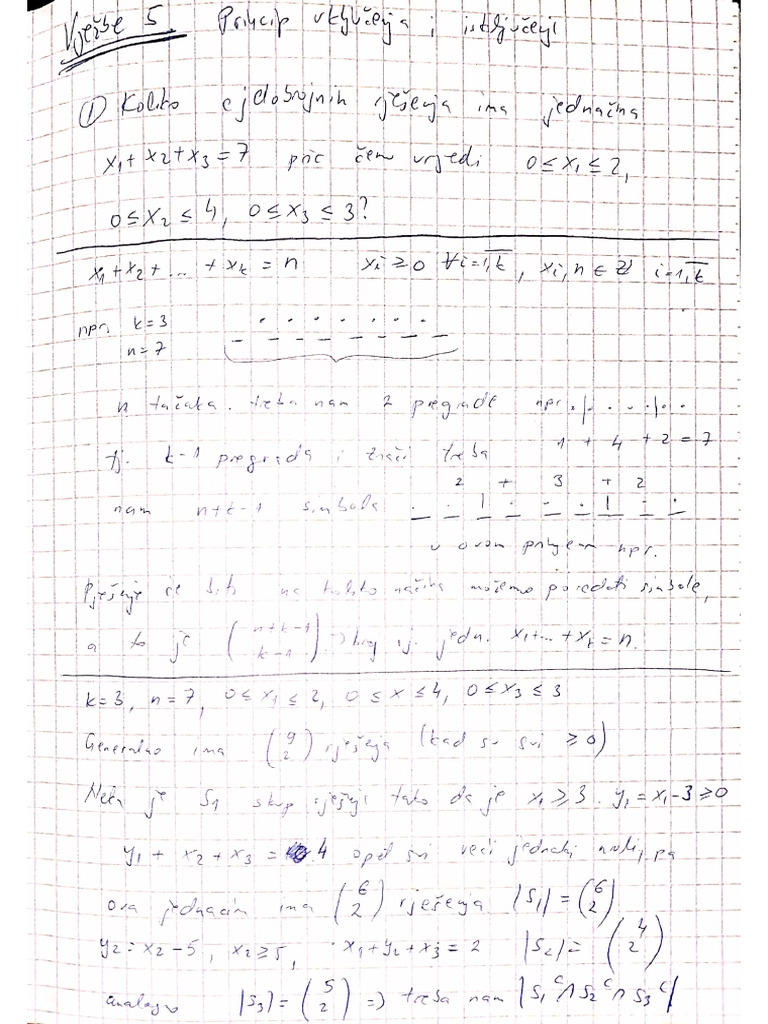 Vježbe 5. Princip uključenja i isključenja
① Koliko cjelobrojnih rješenja ima jednačina
x₁ + x₂ + x₃ = 7 pri čemu vrijedi 0 ≤ x₁ ≤ 2,
0 ≤ x₂ ≤ 4, 0 ≤ x₃ ≤ 3?
x₁ + x₂ + ... + x_k = n xᵢ ≥ 0 ∀i = 1,k̅, xᵢ, n ∈ ℤ i = 1,k̅
npr. k = 3 . . . . . . .
n = 7 _ _ _ _ _ _ _ _ _
n tačaka. treba nam 2 pregrade npr. . | . . . . | . .
1 + 4 + 2 = 7
tj. k-1 pregrada i znači treba
2 + 3 + 2
nam n+k-1 simbola . . | . . . | . .
u ovom primjeru npr.
Rješenje će biti na koliko načina možemo poredati simbole,
a to je (n+k-1 k-1) → broj rj. jedn. x₁ + ... + x_k = n.
k = 3, n = 7, 0 ≤ x₁ ≤ 2, 0 ≤ x ≤ 4, 0 ≤ x₃ ≤ 3
Generalno ima (9 2) rješenja (kad su svi ≥ 0)
Neka je S₁ skup rješenja tako da je x₁ ≥ 3. y₁ = x₁ - 3 ≥ 0
y₁ + x₂ + x₃ = 4 opet svi veći jednaki nuli, pa
ova jednacina ima (6 2) rješenja |S₁| = (6 2)
y₂ = x₂ - 5, x₂ ≥ 5, x₁ + y₂ + x₃ = 2 |S₂| = (4 2)
analogno |S₃| = (5 2) ⇒ treba nam |S₁ᶜ ∩ S₂ᶜ ∩ S₃ᶜ|